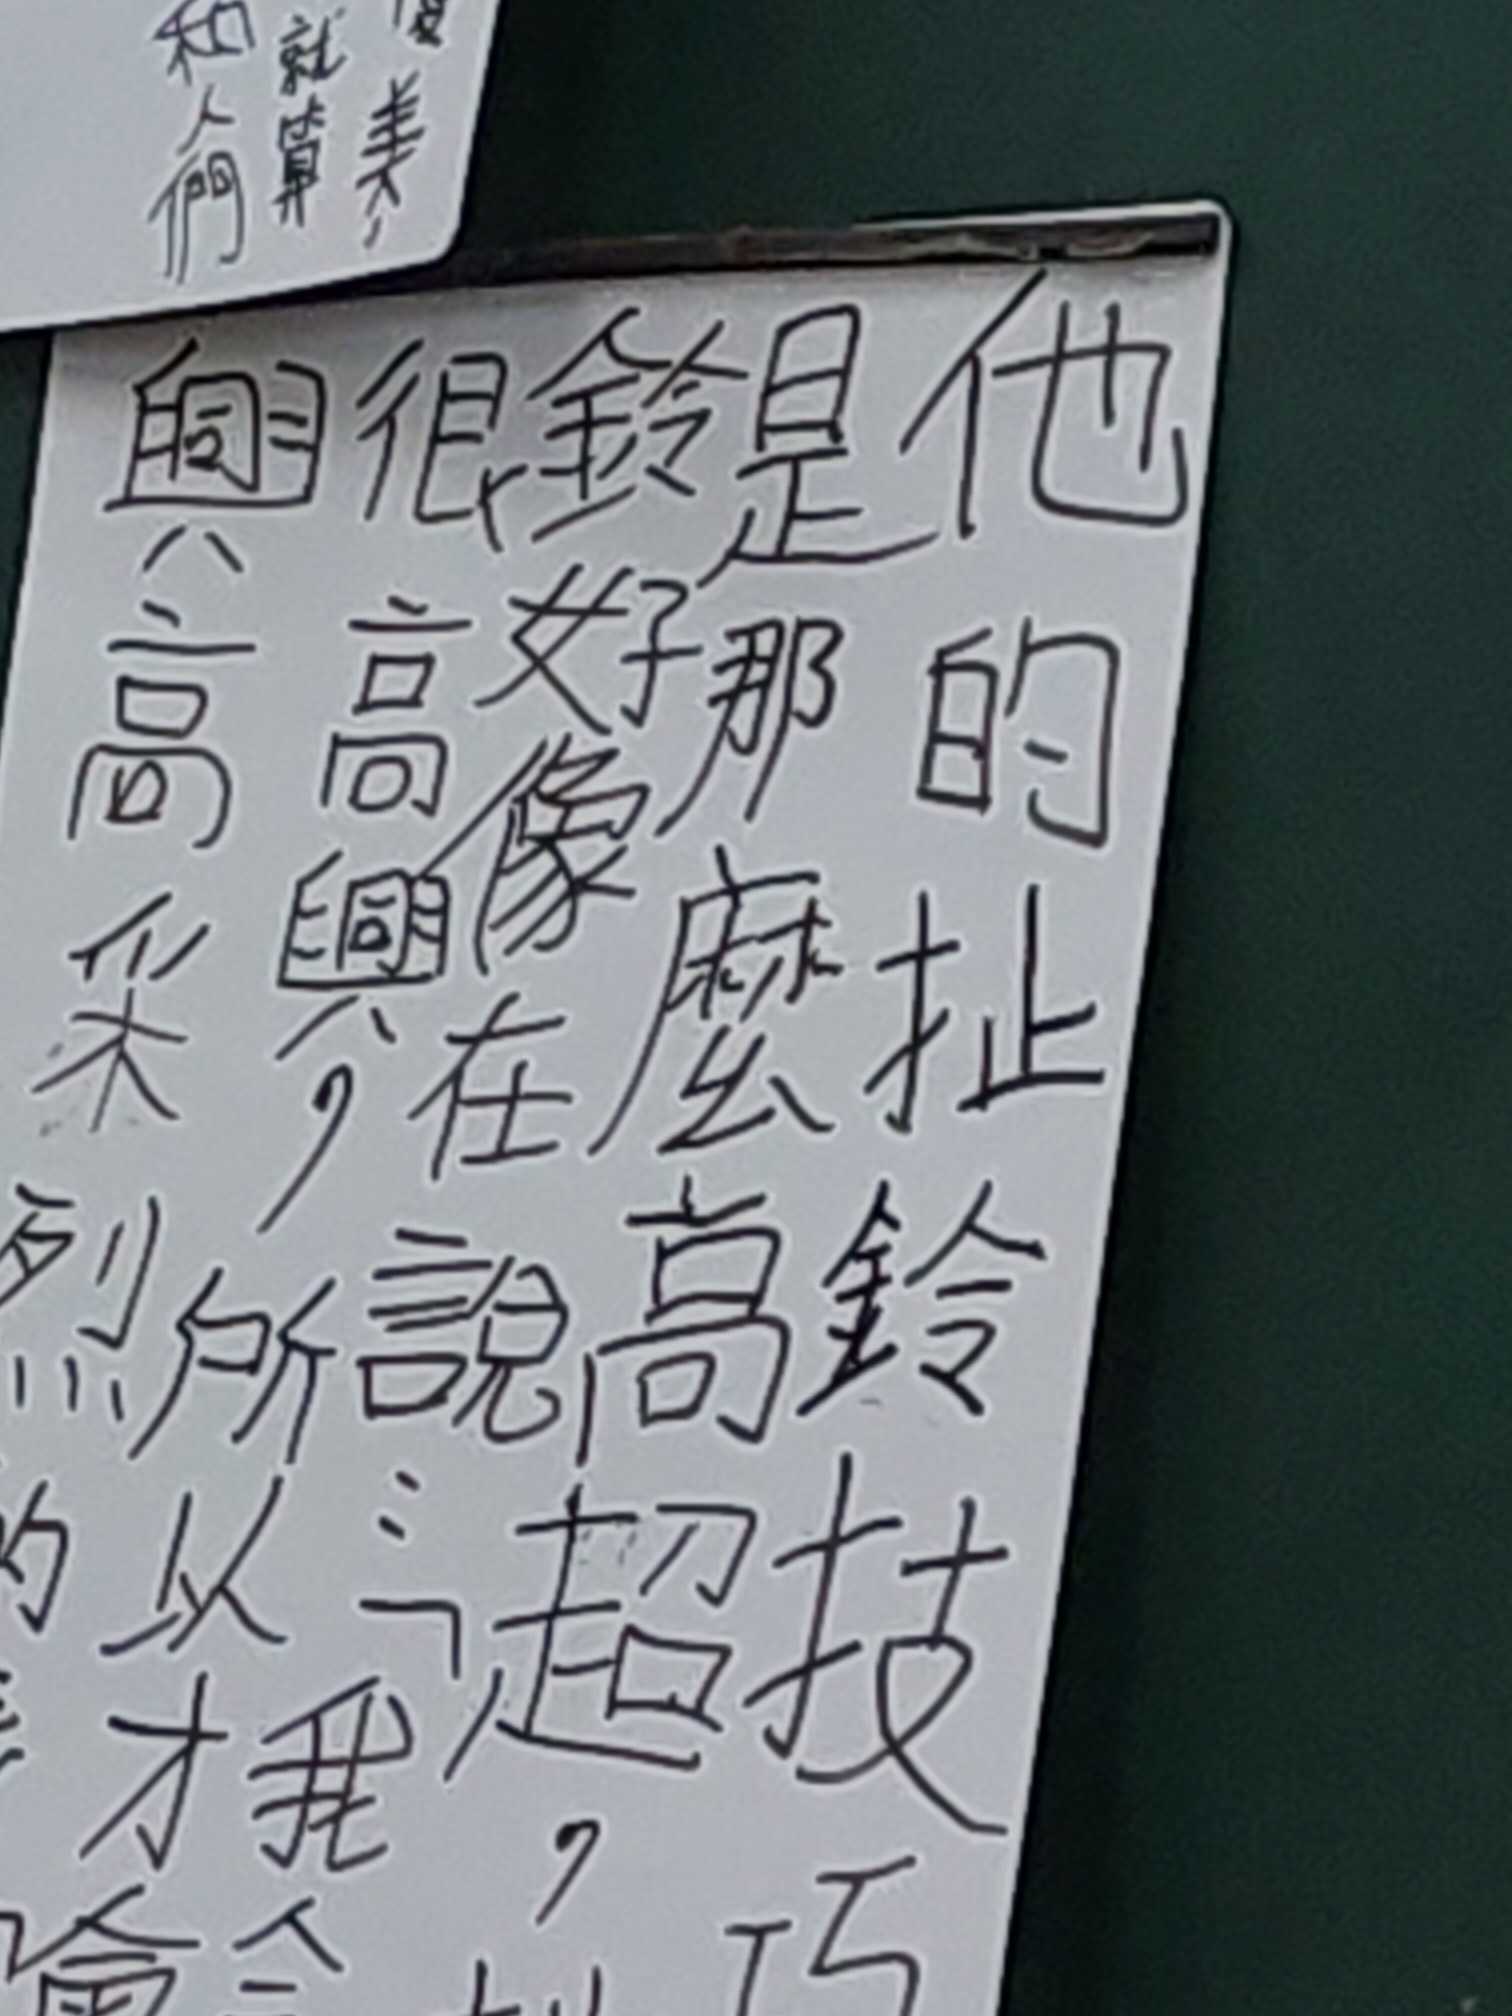 美，
就算
和人們
他的扯鈴技巧
是那麼高超，
鈴好像在說：「我
很高興，所以才會
興高采烈的